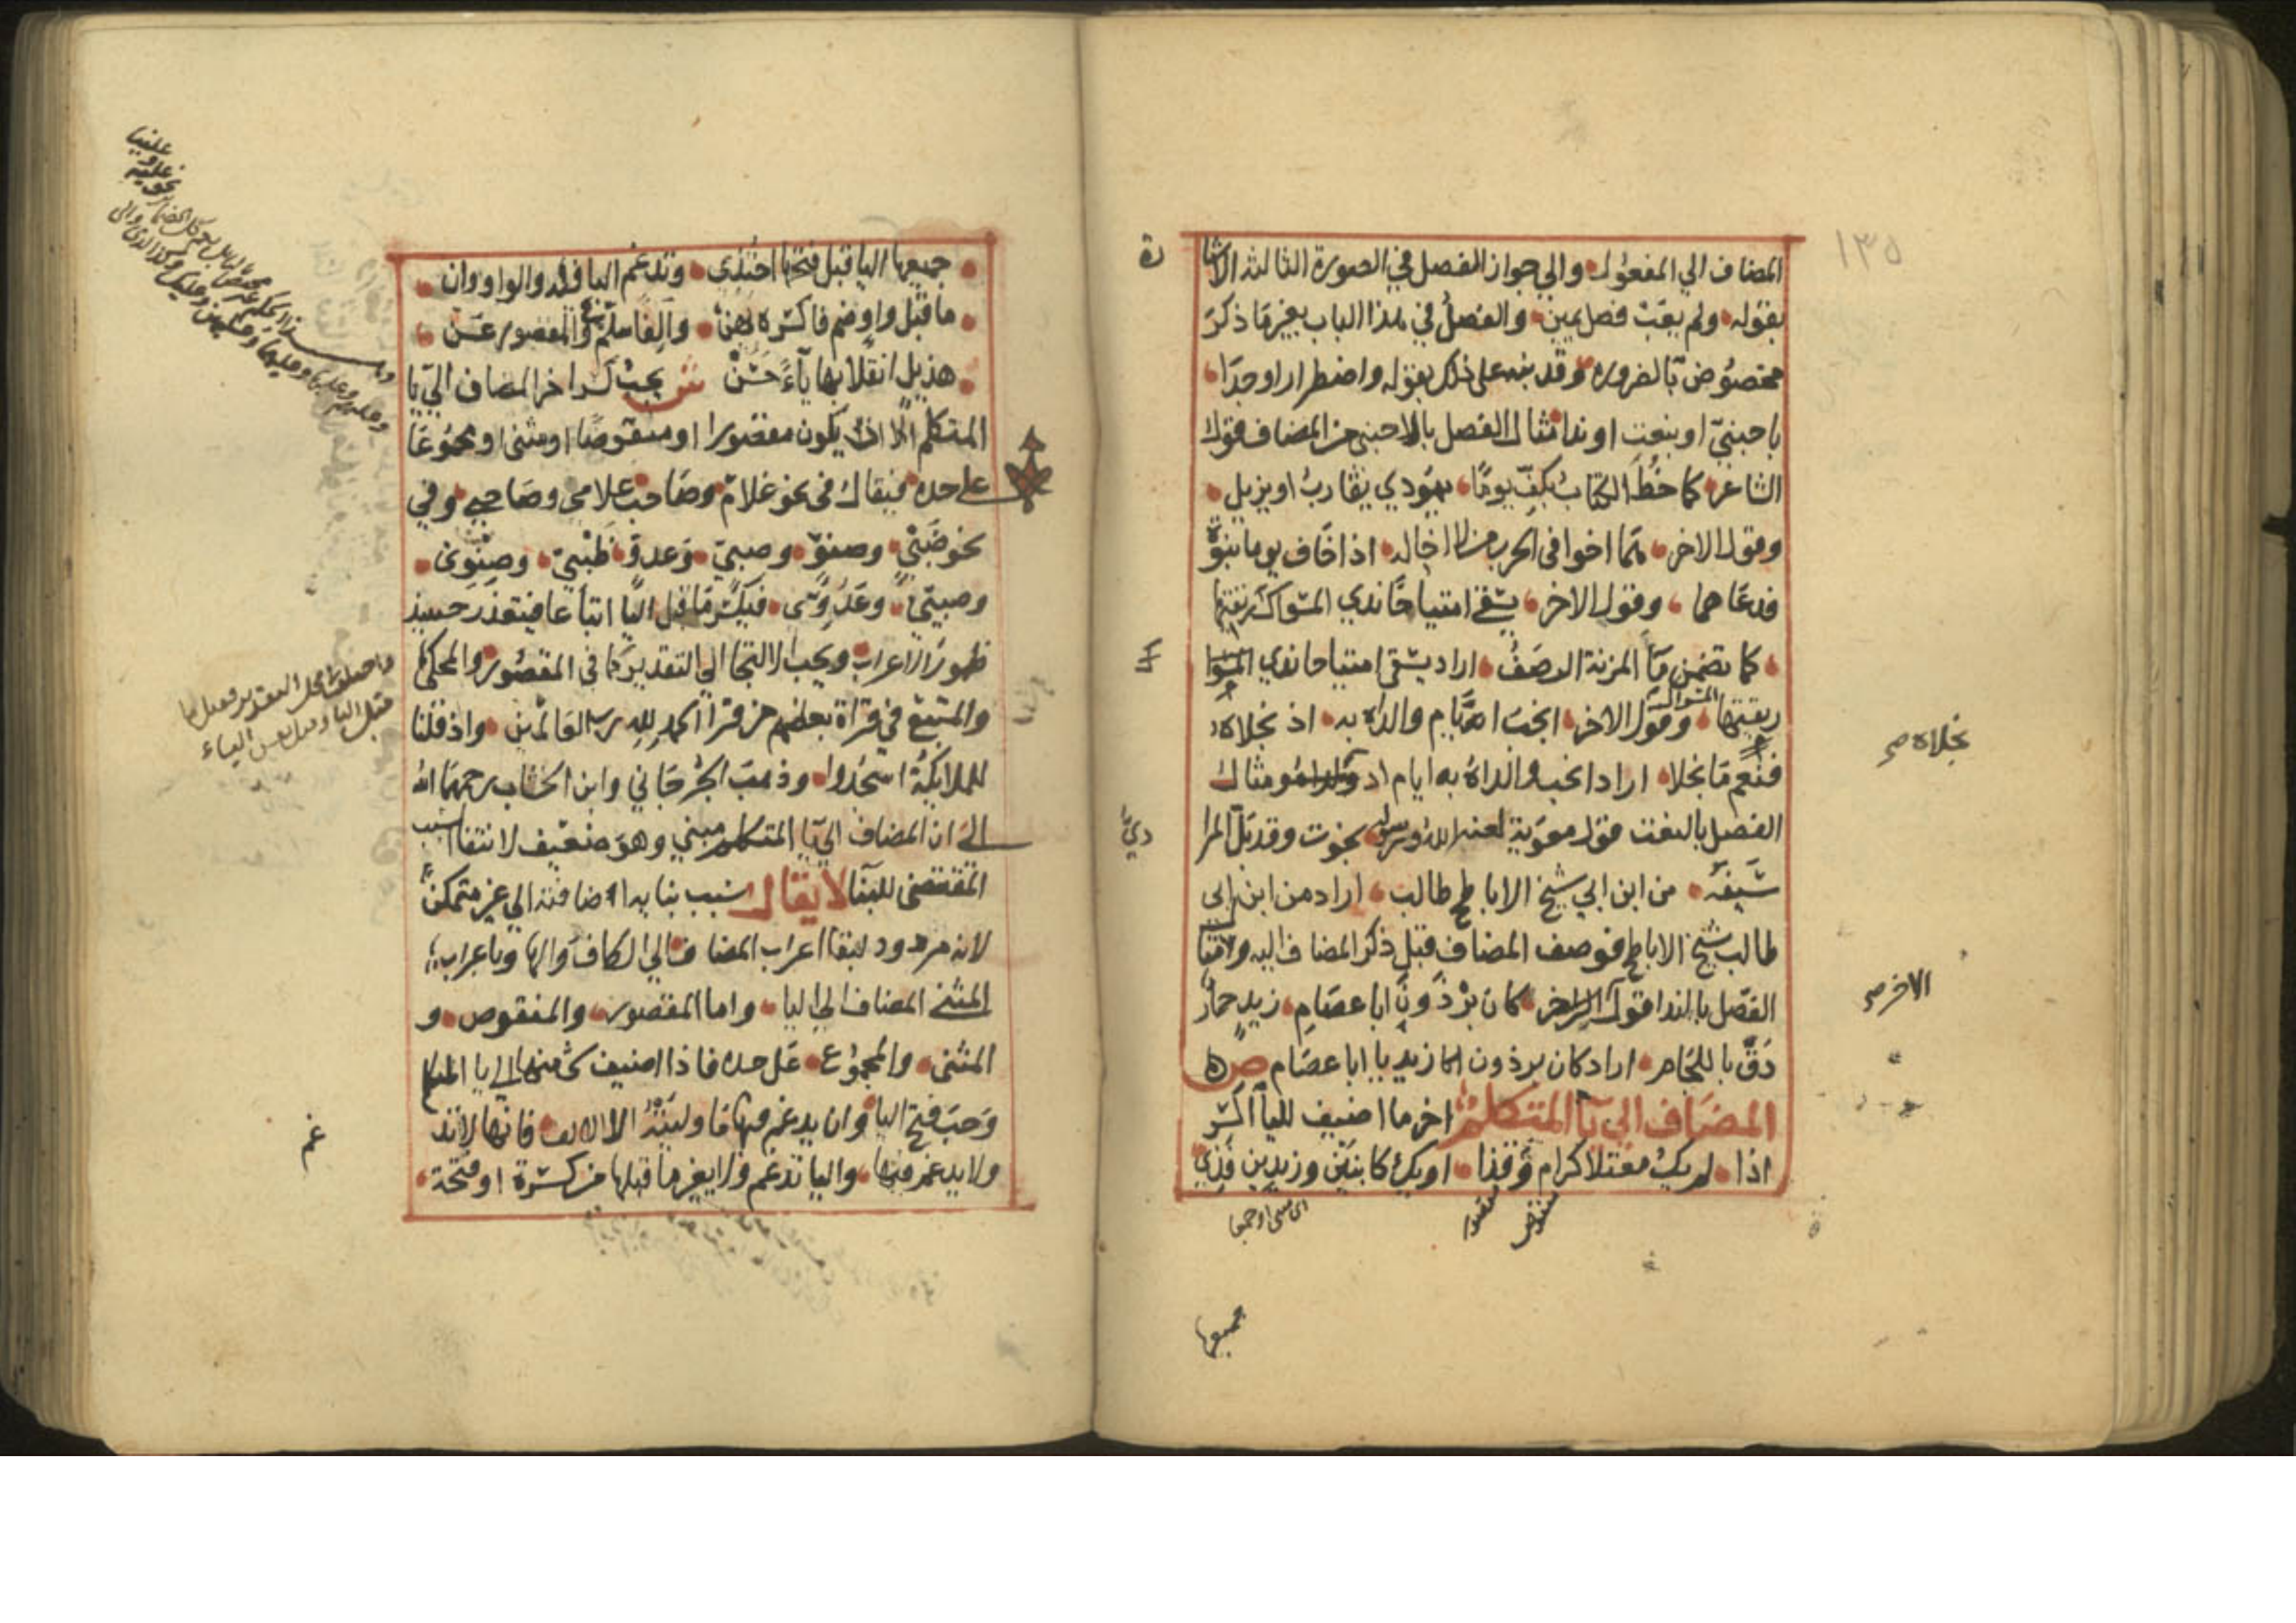 ١٣٥
المضاف الي المفعول والي جواز الفصل في الصورة الثالثة الاشا
رة
بقوله ولم يعب فصل يمين والفصل في هذا الباب بغير ما ذكر
مخصوص بالضرورة وقد نبه على ذلك بقوله واضطرارا وجدا
باجنبي او بنعت او ندا مثال الفصل بالاجنبي من المضاف قول
الشاعر كما خط الكتاب بكف يوما يهودي يقارب او يزيل
وقول الاخر هما اخوا في الحرب من لا اخا له اذا خاف يوما نبوة
فدعاهما وقول الاخر يسقى امتياحا ندي المسواك ريقتها
كما تضمن ماء المزنة الرصف اراد يسقى امتياحا ندي المسوا
ك
ريقتها المسواك وقول الاخر انجب ايام والداه به اذ نجلاه
نجلاه صح
فنعم ما نجلا اراد انجب والداه به ايام اذ ومثال
الفصل بالنعت قول معوية لعنه الله ورسوله نجوت وقد بل المرا
دي
سيفه من ابن ابي شيخ الاباطح طالب اراد من ابن ابي
طالب شيخ الاباطح فوصف المضاف قبل ذكر المضاف اليه ومثا
ل
الفصل بالندا قول الاخر كان برذون ابا عصام زيد حمار
الاخر صح
دق باللجام اراد كان برذون زيد يا ابا عصام ص
المضاف الي يا المتكلم اخر ما اضيف لليا اكسر
اذا لم يك معتلا كرام وقذا او يك كابنين وزيدين فذي
منقوص
مقصور
جميعها
جميعها اليا قبل فتحها احتذى وتدغم اليا فيه والواو وان
ما قبل واو ضم فاكسره يهن والفا سلم وفي المقصور عن
هذيل انقلابها ياء حسن ش يجب كسر اخر المضاف الي يا
المتكلم الا ان يكون مقصورا او منقوصا او مثنى او مجموعا
على حده فيقال في نحو غلام وصاحب غلامي وصاحبي وفي
نحو ظبي وصنو وصبي وعدو ظبيي وصنوي
وصبيي وعدوي فيكسر ما قبل اليا اتباعا فيتعذر حينيذ
ظهور الاعراب ويجب الالتجا الي التقدير كما في المقصور والمحكي
والمتبع في قراة بعضهم من قرا الحمد لله رب العالمين واذ قلنا
للملايكة اسجدوا وذهب الجرجاني وابن الخشاب رحمهما الله
الى ان المضاف الي يا المتكلم مبني وهو ضعيف لانتفا السبب
المقتضى للبنا لا يقال سبب بنايه اضافته الي غير متمكن
لانه مردود لبقا اعراب المضاف الي الكاف والها وباعراب
المثنى المضاف الي اليا واما المقصور والمنقوص و
المثنى والمجموع على حده فاذا اضيف شي منها الي يا المتكلم
وجب فتح اليا وان يدغم فيها ما وليته الا الالف فانها لا تد
غم
ولا يدغم فيها واليا تدغم ولا يغير ما قبلها من كسرة او فتحة